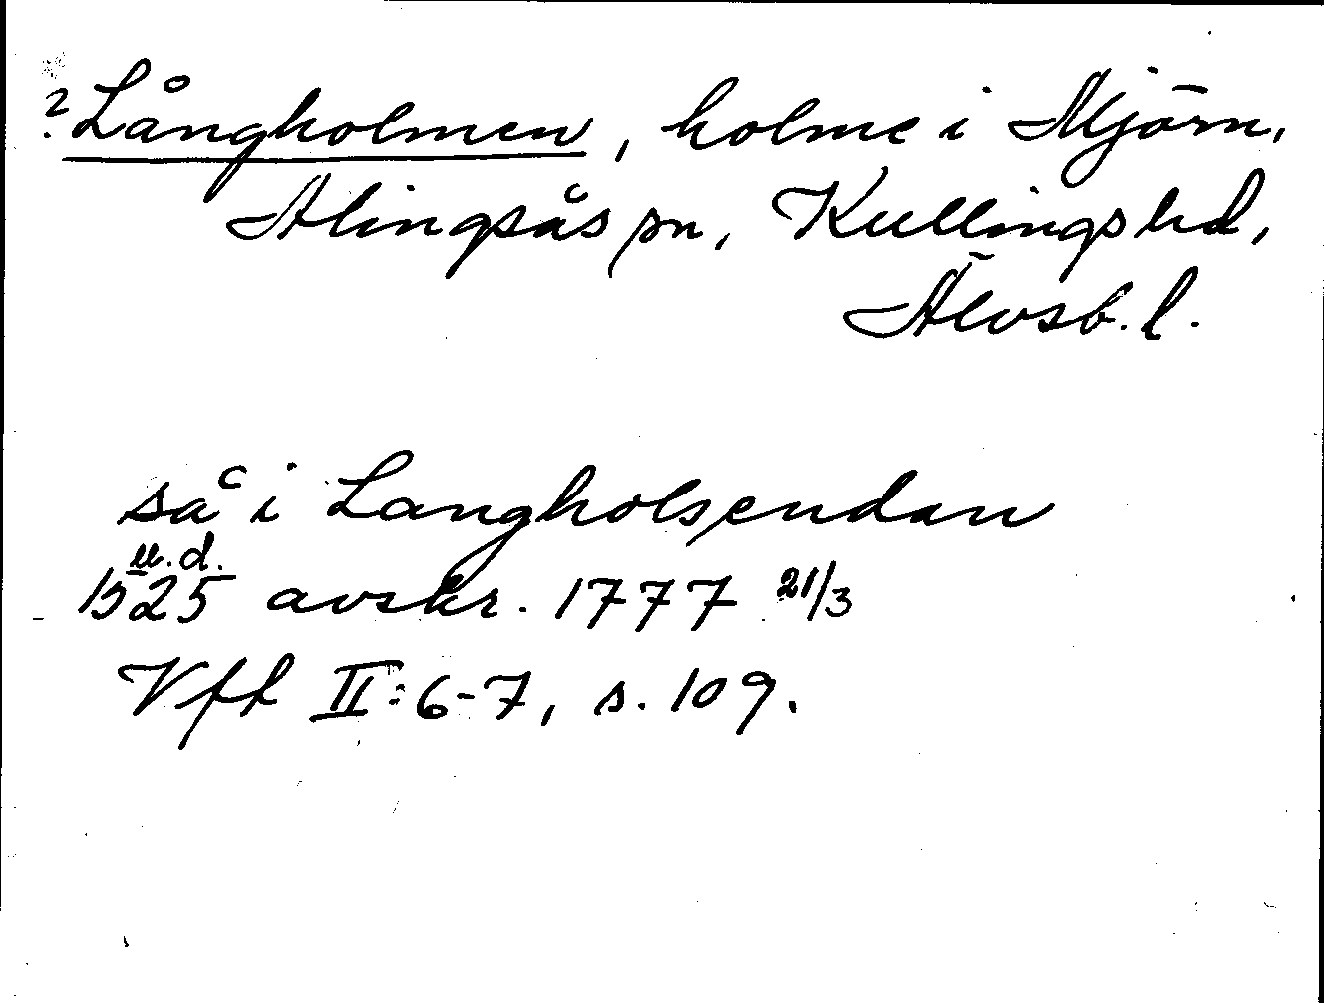 ? Långholmen, holme i Mjörn,
Alingsås sn, Kullings hd,
Älvsb. l.
så i Langholsendan
u.d.
1525 avskr. 1777 21/3
Vft II:6-7, s. 109.